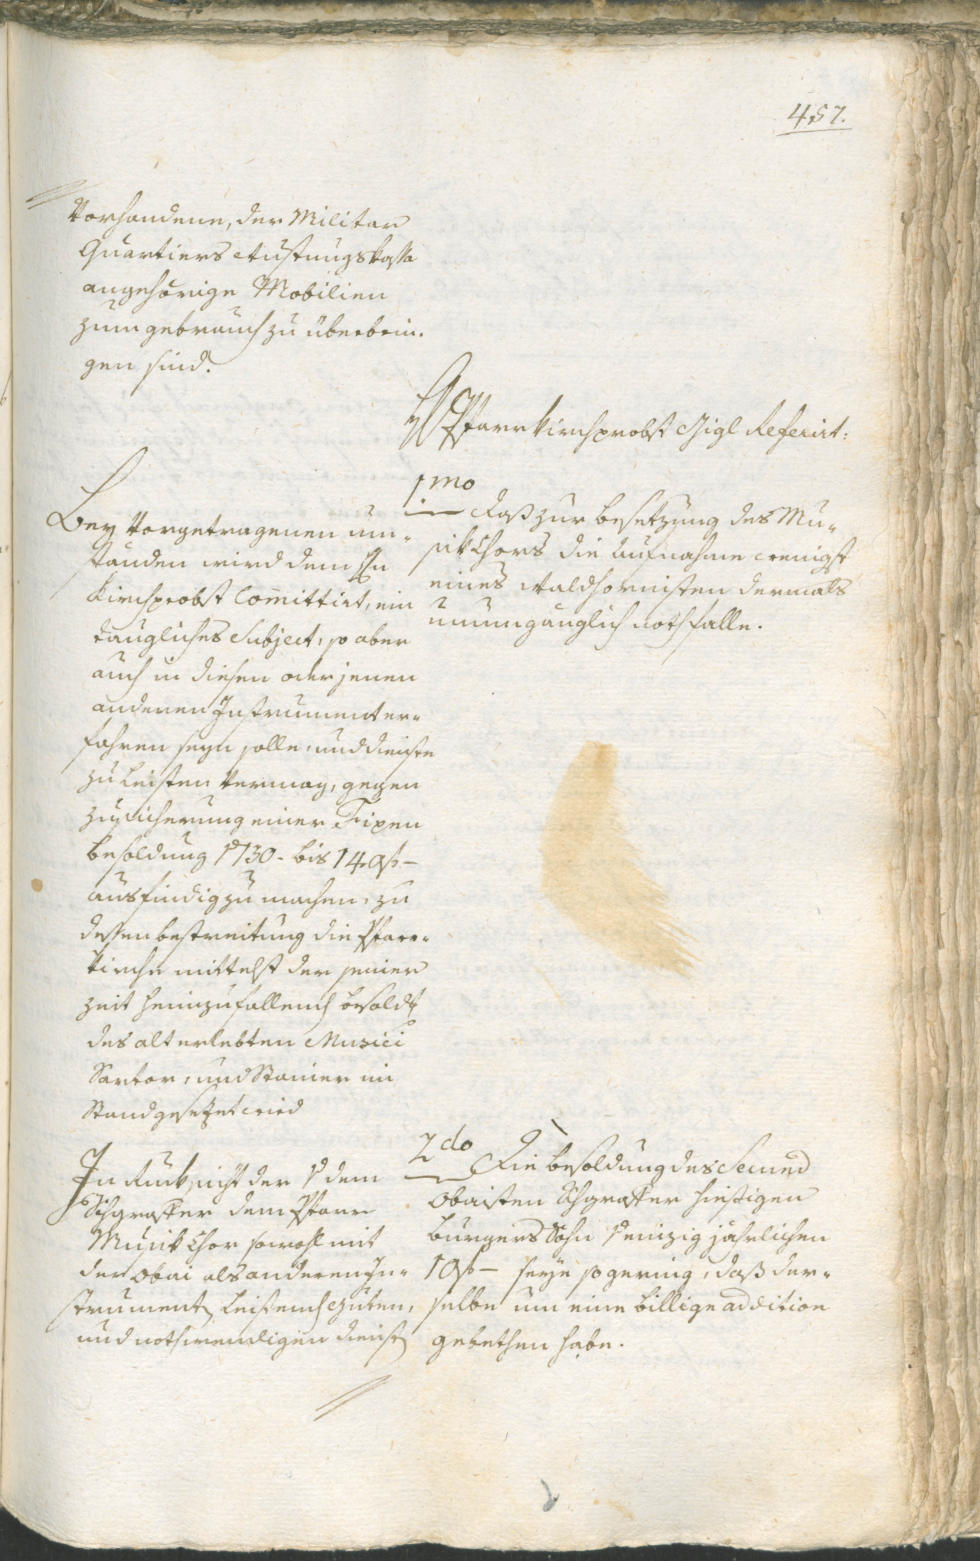 457.
Vorhandene, der Militar
Quartiers Rüstungs kassa
angehörige Mobilien
zum gebrauch zu überbrin.
gen sind.
H Pfarrkirchprobst Gigl Referirt:
1mo
daß zur besetzung des Mu-
sik Chors die Aufnahme wenigst
eines Waldhornisten dermals
unumgänglich nothfalle.
Bey Vorgetragenen um-
ständen wird dem Hn
Kirchprobst Comittirt, ein
taugliches Subject, so aber
auch in diesen oder jenen
anderen Instrument er-
fahren seyn solle, und dienste
zu leisten vermag, gegen
zusicherung einer Fixen
besoldung 130 bis
ausfindig zu machen, zu
dessen bestreitung die Pfarr-
kirche mittelst der seiner
zeit heimzufallend besold
des alt erlebten Musici
Sartor, und Stainer im
Stand gesetzet wird
2do Die besoldung des Second
Obaisten Schgraffer hiesigen
burgers Sohn einzig jährlichen
seye so gering, daß der-
selbe um eine billige addition
gebethen habe.
In Rücksicht der dem
Schgraffer dem Pfarr
Musik Chor sowohl mit
der Obai als anderen In-
strument leistend guten,
und nothwendigen dienst